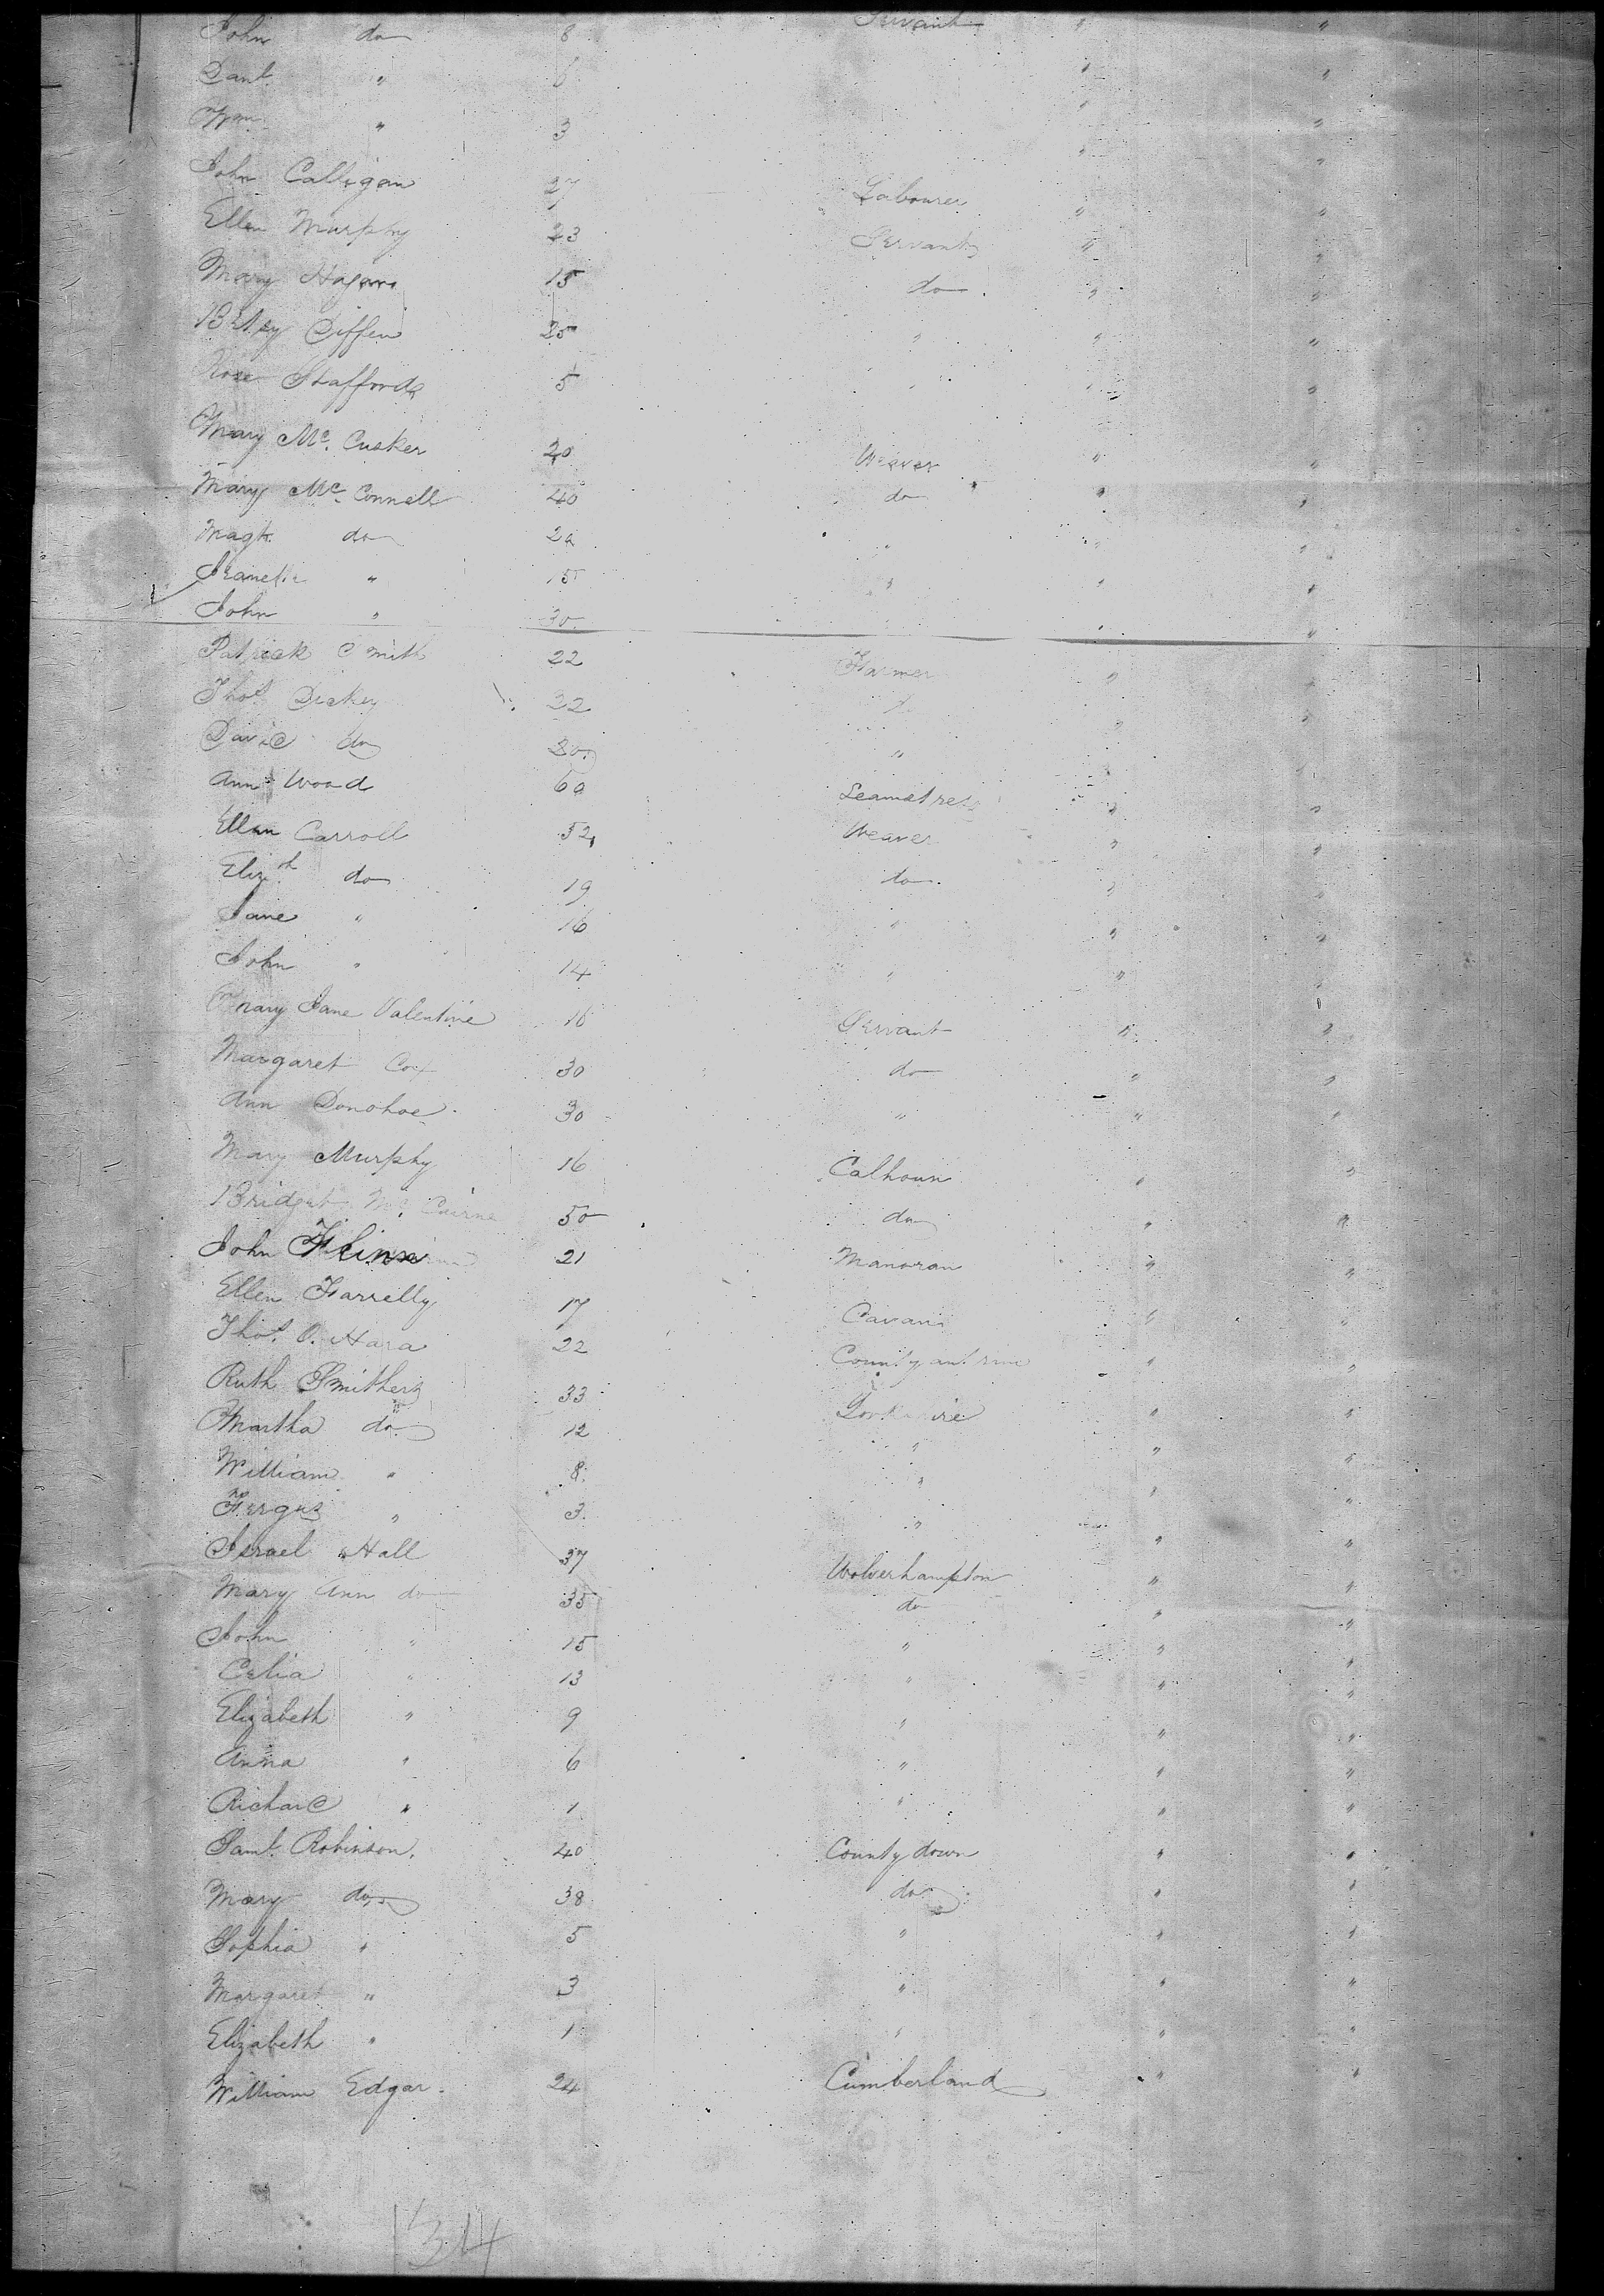 John do 8 Servant " "
Danl. " 6 " "
Wm. " 3 " "
John Calligan 27 Labourer " "
Ellen Murphy 23 Servant " "
Mary Hagan 15 do " "
Betsy Diffen 25 " " "
Rose Stafford 5 " " "
Mary Mc. Cusker 20 Weaver " "
Mary Mc. Connell 40 do " "
Magt. do 20 " " "
15 " " "
John " 30 " "
Patrick Smith 22 Farmer " "
Thos. Dickey 22 " "
David do " "
Ann Wood 60 Seamstress " "
Ellen Carroll 52 Weaver " "
Elizth do 19 do " "
Jane " 16 " " "
John " 14 " " "
Mary Jane Valentine 16 Servant " "
Margaret Cox 30 do " "
Ann Donohoe 30 " " "
Mary Murphy 16 Calhoun " "
Bridget Mc. 50 do " "
John Flinn 21 " "
Ellen Farrelly 17 Cavan " "
Thos. O. Hara 22 County antrim " "
Ruth Smithers 33 Yorkshire " "
Martha do 12 " " "
William " 8 " " "
Fergus " 3 " " "
Israel Hall 37 Wolverhampton " "
Mary Ann do 35 do " "
John " 15 " " "
Celia " 13 " " "
Elizabeth " 9 " " "
Anna " 6 " " "
Richard " 1 " " "
Saml. Robinson. 40 County down " "
Mary do 38 do " "
Sophia " 5 " " "
Margaret " 3 " " "
Elizabeth " 1 " " "
William Edgar. 24 Cumberland " "
314